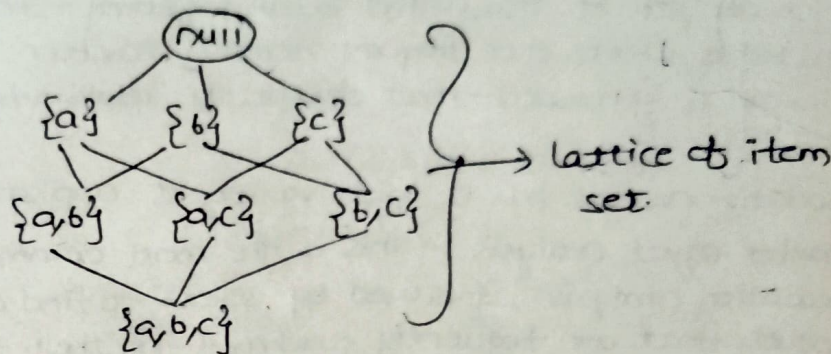 null
{a} {b} {c}
{a,b} {a,c} {b,c}
{a,b,c}
lattice of item
set.